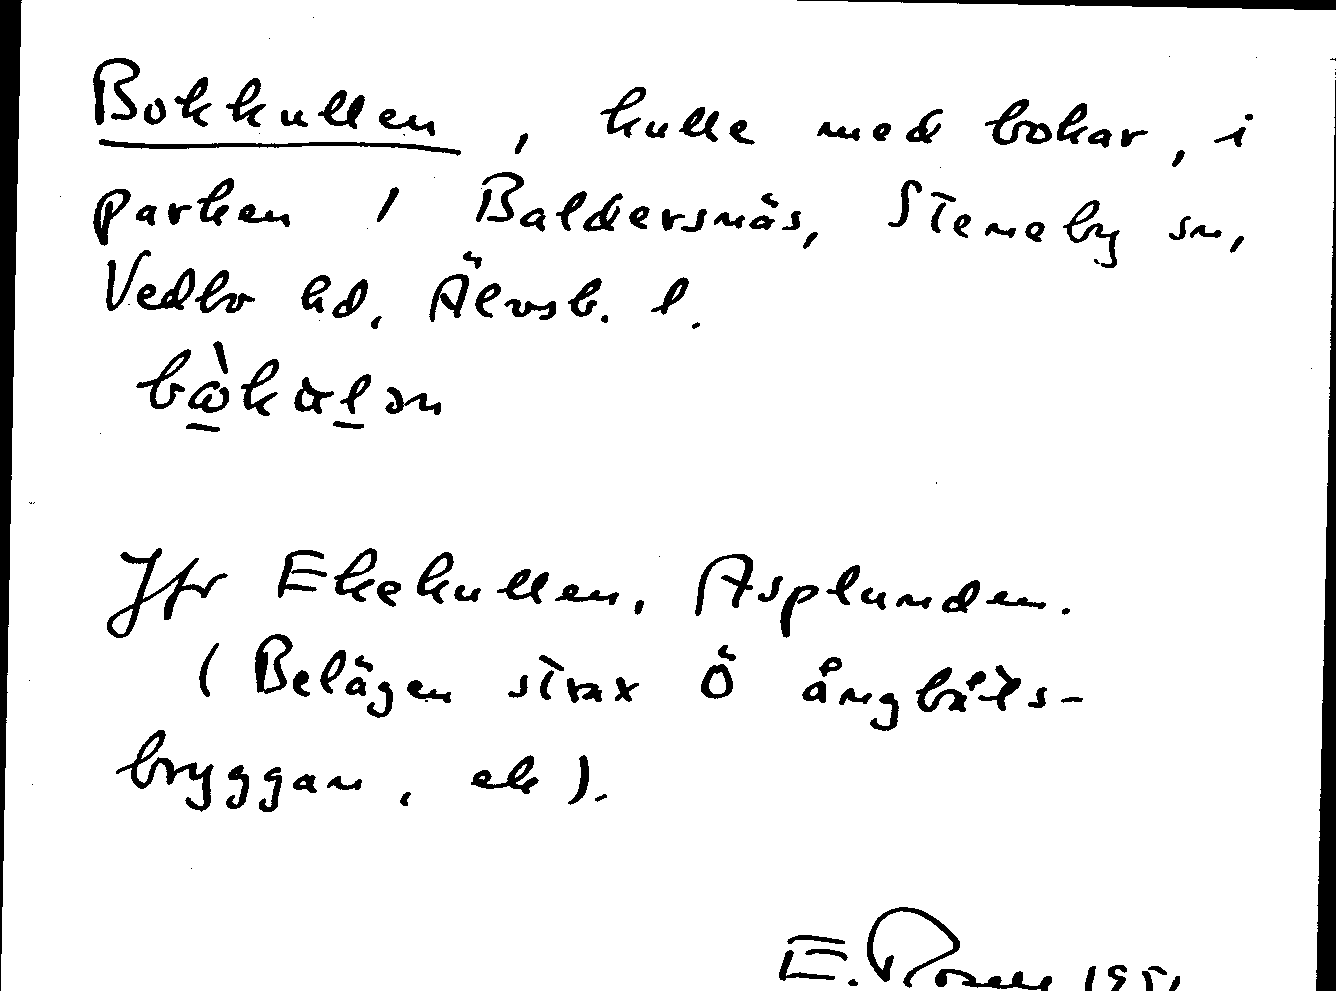 Bokkullen, kulle med bokar, i
parken / Baldersnäs, Steneby sn,
Vedbo hd, Älvsb. l.
Jfr Ekekullen, Asplunden.
(Belägen strax Ö ångbåts-
bryggan, ek).
E.